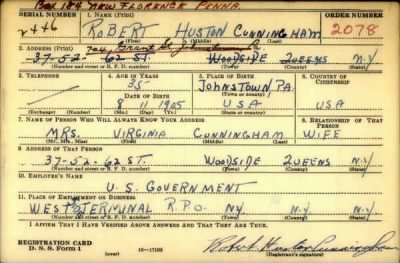 Box 184 NEW FLORENCE PENNA.
SERIAL NUMBER 1. NAME (Print) ORDER NUMBER
2446 ROBERT HUSTON CUNNINGHAM 2078
(First) (Middle) (Last)
2. ADDRESS (Print) 704 Grant St. Johnstown Pa
37-52-62 ST. WOODSIDE QUEENS N.Y
(Number and street or R. F. D. number) (Town) (County) (State)
3. TELEPHONE 4. AGE IN YEARS 5. PLACE OF BIRTH 6. COUNTRY OF CITIZENSHIP
35 JOHNSTOWN PA.
DATE OF BIRTH (Town or county)
8 11 1905 USA USA
(Exchange) (Number) (Mo.) (Day) (Yr.) (State or country)
7. NAME OF PERSON WHO WILL ALWAYS KNOW YOUR ADDRESS 8. RELATIONSHIP OF THAT PERSON
MRS. VIRGINIA CUNNINGHAM WIFE
(Mr., Mrs., Miss) (First) (Middle) (Last)
9. ADDRESS OF THAT PERSON
37-52-62 ST. WOODSIDE QUEENS N.Y
(Number and street or R. F. D. number) (Town) (County) (State)
10. EMPLOYER'S NAME
U.S. GOVERNMENT
11. PLACE OF EMPLOYMENT OR BUSINESS
WEST TERMINAL R.P.O. NY NY N.Y
(Number and street or R. F. D. number) (Town) (County) (State)
I AFFIRM THAT I HAVE VERIFIED ABOVE ANSWERS AND THAT THEY ARE TRUE.
REGISTRATION CARD
D. S. S. Form 1 16-17105 Robert Huston Cunningham
(over) (Registrant's signature)